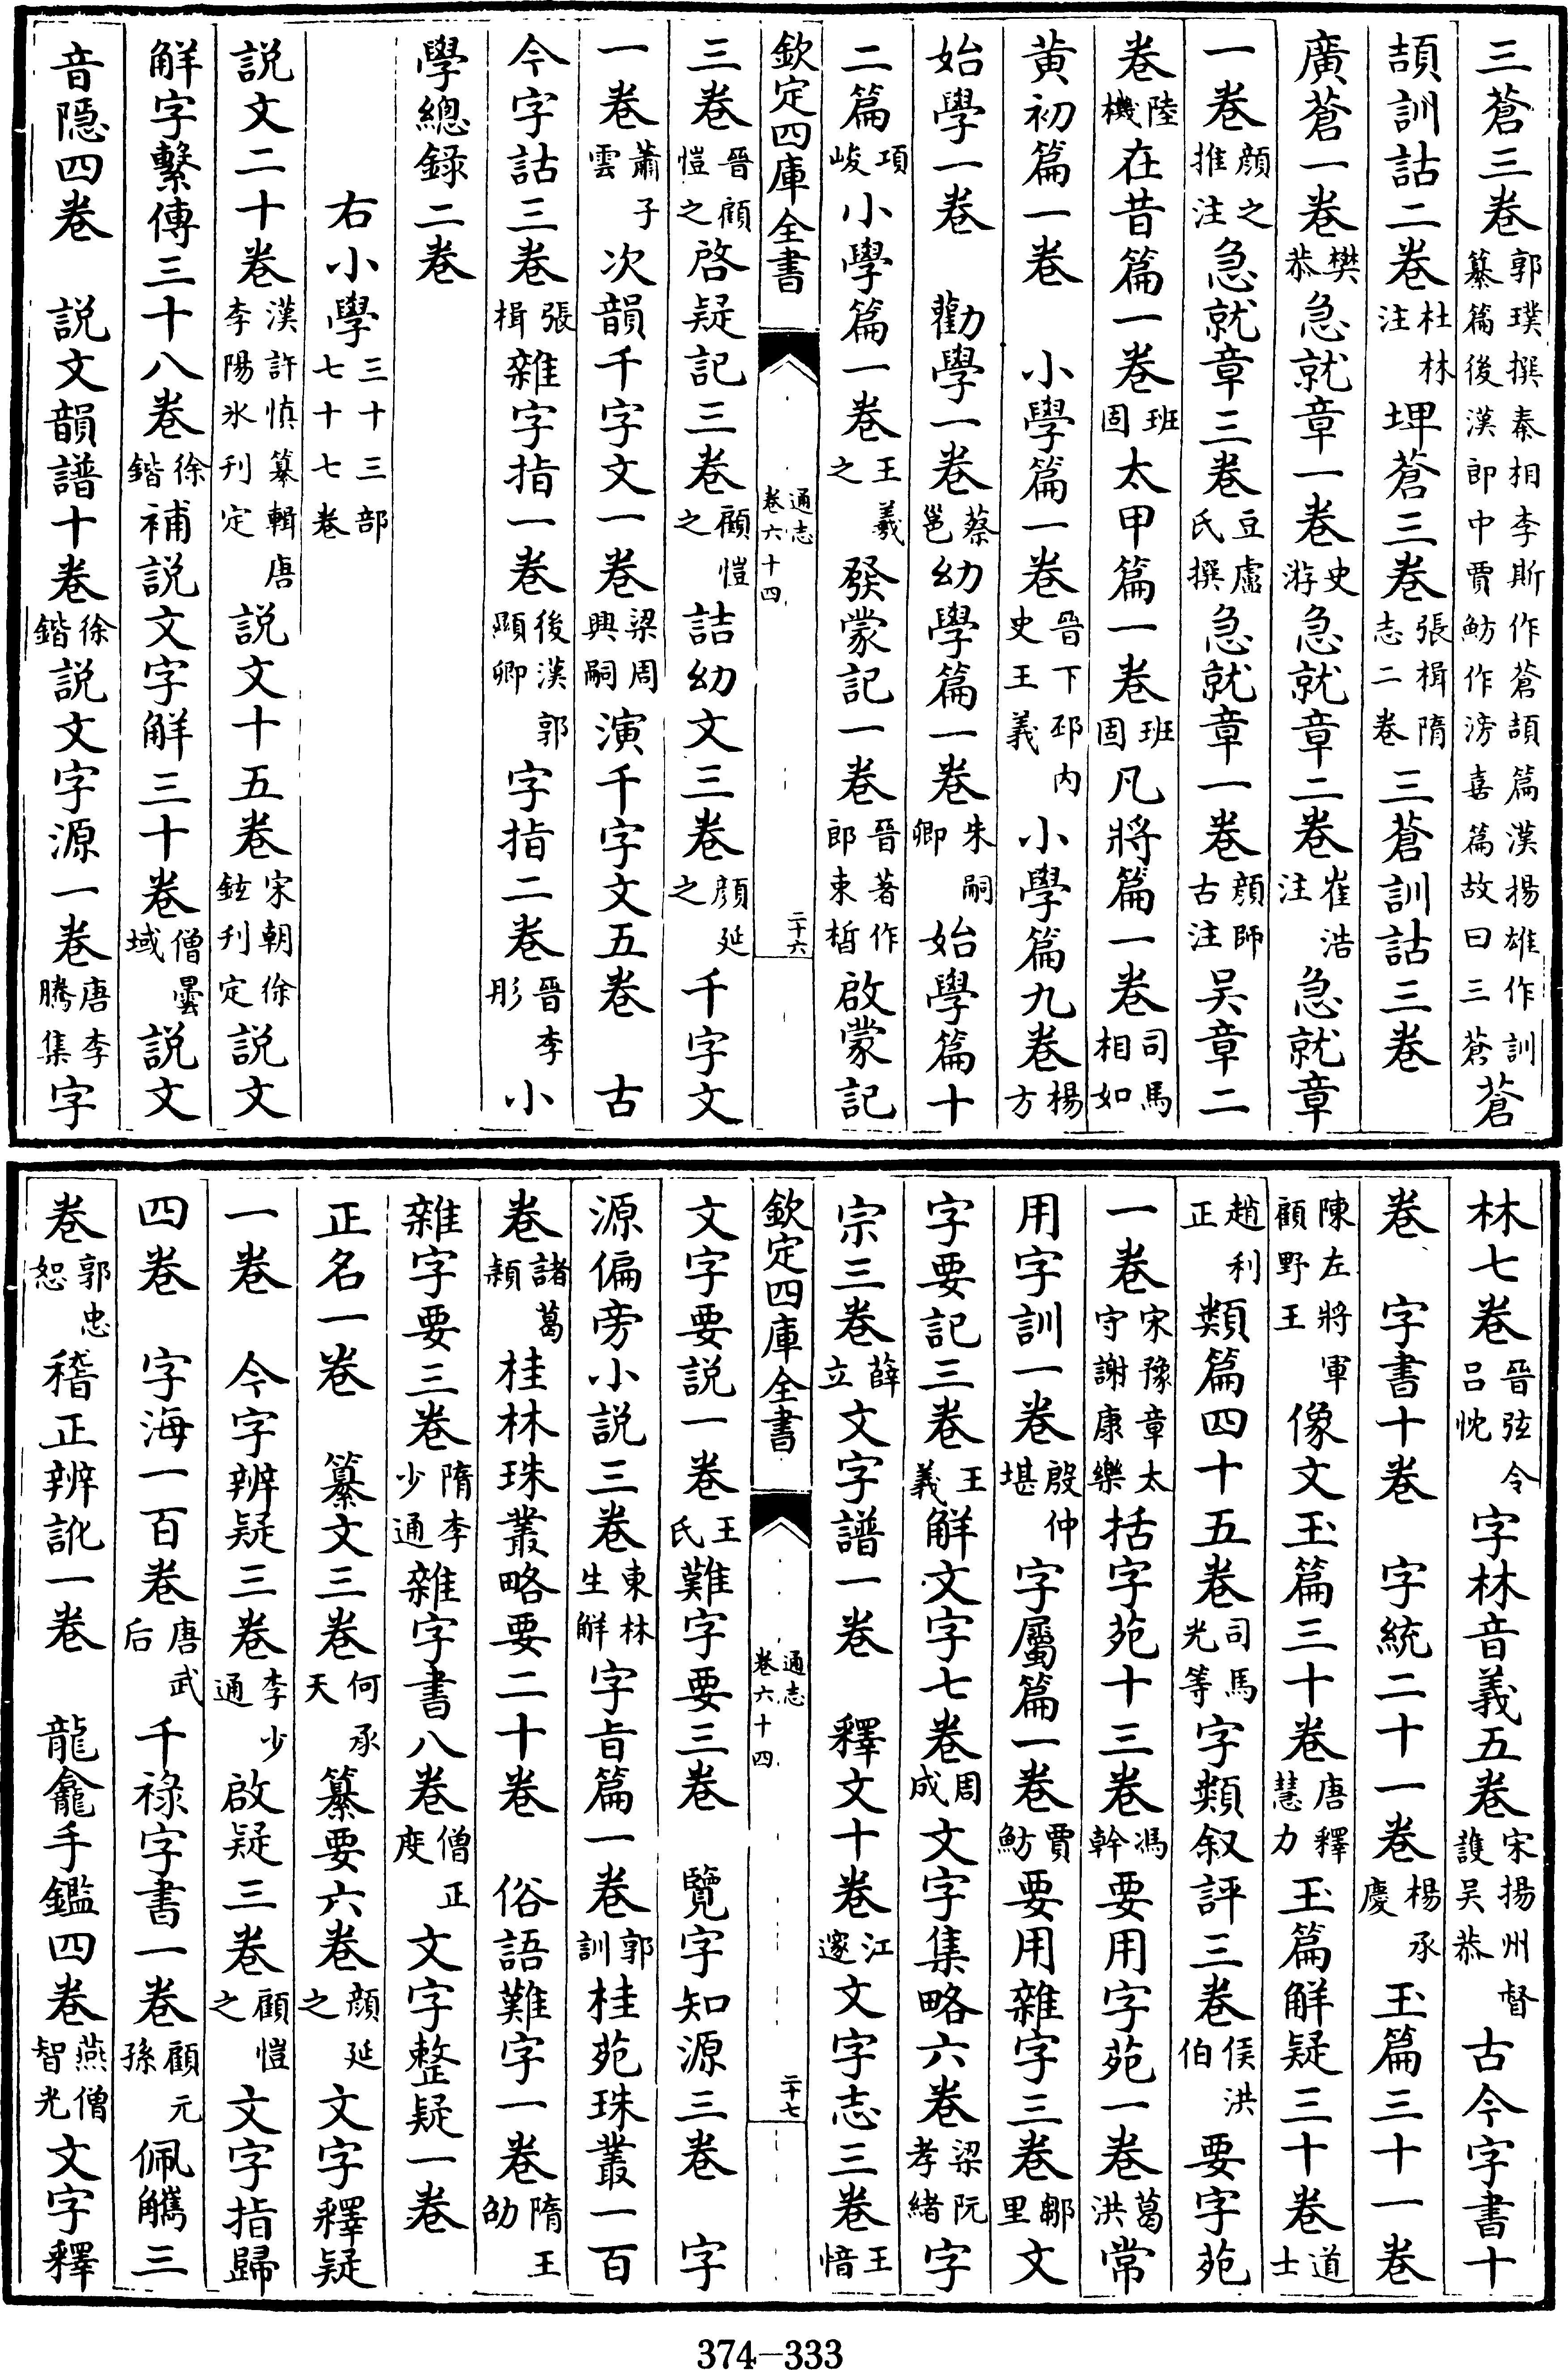 三蒼三卷郭璞撰秦相李斯作蒼頡篇漢揚雄作訓纂篇後漢郎中賈魴作滂喜篇故曰三蒼蒼
頡訓詁二卷杜林注埤蒼三卷張楫隋志二卷三蒼訓詁三卷
廣蒼一卷樊恭急就章一卷史游急就章二卷崔浩注急就章
一卷顏之推注急就章三卷豆盧氏撰急就章一卷顏師古注吳章二
卷陸機在昔篇一卷班固太甲篇一卷班固凡將篇一卷司馬相如
黃初篇一卷小學篇一卷晉下邳內史王義小學篇九卷楊方
始學一卷勸學一卷蔡邕幼學篇一卷朱嗣卿始學篇十
二篇項峻小學篇一卷王羲之發蒙記一卷晉著作郎束晳啟蒙記
欽定四庫全書 通志卷六十四 二十六
三卷晉顧愷之啓疑記三卷顧愷之詰幼文三卷顏延之千字文
一卷蕭子雲次韻千字文一卷梁周興嗣演千字文五卷古
今字詁三卷張楫雜字指一卷後漢郭顯卿字指二卷晉李彤小
學總錄二卷
右小學三十三部七十七卷
説文二十卷漢許慎纂輯唐李陽氷刊定説文十五卷宋朝徐鉉刊定説文
解字繫傳三十八卷徐鍇補説文字解三十卷僧曇域説文
音隱四卷説文韻譜十卷徐鍇説文字源一卷唐李騰集字
林七卷晉弦令呂忱字林音義五卷宋揚州督護吴恭古今字書十
卷字書十卷字統二十一卷楊承慶玉篇三十一卷
陳左將軍顧野王像文玉篇三十卷唐釋慧力玉篇解疑三十卷道士
趙利正類篇四十五卷司馬光等字類叙評三卷侯洪伯要字苑
一卷宋豫章太守謝康樂括字苑十三卷馮幹要用字苑一卷葛洪常
用字訓一卷殷仲堪字屬篇一卷賈魴要用雜字三卷鄒里文
字要記三卷王義解文字七卷周成文字集略六卷梁阮孝緒字
宗三卷薛立文字譜一卷釋文十卷江邃文字志三卷王愔
欽定四庫全書 通志卷六十四 二十七
文字要説一卷王氏難字要三卷覽字知源三卷字
源偏旁小説三卷東林生解字旨篇一卷郭訓桂苑珠叢一百
卷諸葛潁桂林珠叢略要二十卷俗語難字一卷隋王劭
雜字要三卷隋李少通雜字書八卷僧正度文字整疑一卷
正名一卷纂文三卷何承天纂要六卷顏延之文字釋疑
一卷今字辨疑三卷李少通啟疑三卷顧愷之文字指歸
四卷字海一百卷唐武后千祿字書一卷顧元孫佩觿三
卷郭忠恕稽正辨訛一卷龍龕手鑑四卷燕僧智光文字釋
374-333